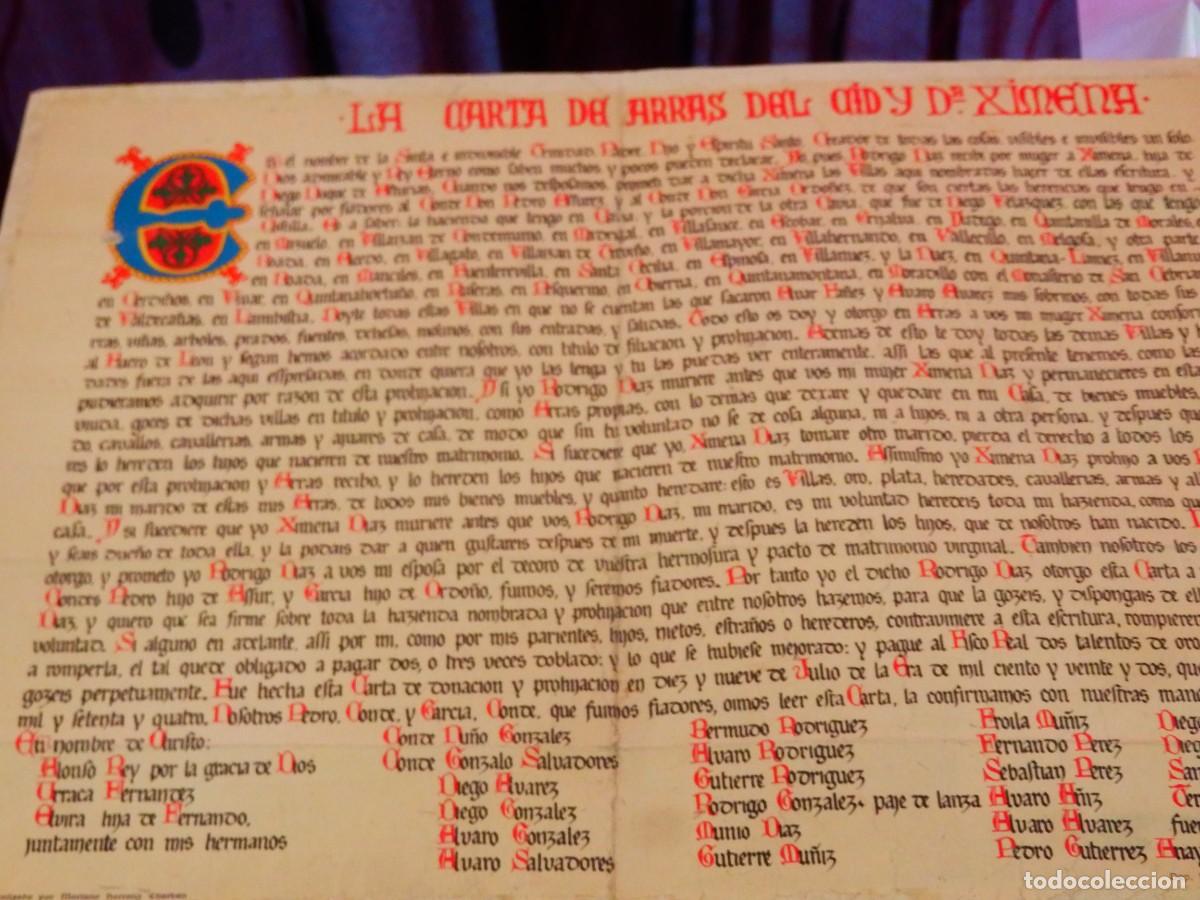 ·LA CARTA DE ARRAS DEL CID Y Dª XIMENA·
En el nombre de la Santa e indivisible Trinidad, Padre, Hijo y Espiritu Santo, Creador de todas las cosas, visibles e invisibles un solo
Dios admirable y Rey Eterno como saben muchos y pocos pueden declarar. Yo pues, Rodrigo Diaz recibi por muger a Ximena, hija de
Diego Duque de Asturias. Quando nos desposamos, prometi dar a dicha Ximena las Villas aqui nombradas hacer de ellas escritura, y
señalar por fiadores al Conde Don Pedro Assurez, y al Conde Don Garcia Ordoñez, de que son ciertas las herencias que tengo en
Castilla. Es a saber: la hacienda que tengo en Cavia, y la porcion de la otra Cavia, que fue de Diego Velazquez, con las que tengo
en Mazuelo, en Villayzan de Candemunio, en Madrigal, en Villasauce, en Escobar, en Grijalva, en Ludego, en Quintanilla de Morales,
en Boada, en Manciles, en en Santa Cecilia, en Espinosa, en Villanuez, y la Nuez, en Quintana-Lainez, en
en Cerdiños, en Vivar, en Quintanahortuño, en Ruseras, en Pesquerino, en Ubierna, en Quintanamontana, en Moradillo con el Monasterio de San Cebrian
de Valdecañas, en Lambistia. Doyte todas estas Villas en que no se cuentan las que sacaron Alvar Fañez y Alvaro Alvarez mis sobrinos, con todas sus
rras, viñas, arboles, prados, fuentes, dehesas, molinos, con sus entradas, y salidas. Todo esto os doy y otorgo en Arras a vos mi muger Ximena conform
al Fuero de Leon y segun hemos acordado entre nosotros, con titulo de filiacion y prohijacion. Ademas de esto te doy todas las demas Villas y
dades fuera de las aqui espresadas, en donde quiera que yo las tenga y tu las puedas ver enteramente, assi las que al presente tenemos, como las
pudieramos adquirir por razon de esta prohijacion. Y si yo Rodrigo Diaz muriere antes que vos mi mujer Ximena Diaz y permanecieres en esta
viuda, goces de dichas villas en titulo y prohijacion, como Arras propias, con lo demas que dexare y quedare en mi Casa, de bienes muebles,
do, cavallos, cavallerias, armas y ajuares de casa, de modo que sin tu voluntad no se de cosa alguna, ni a hijos, ni a otra persona, y despues que
res lo hereden los hijos que nacieren de nuestro matrimonio. Si sucediere que yo, Ximena Diaz tomare otro marido, pierda el derecho à todos los
que por esta prohijacion y Arras recibo, y lo hereden los hijos que nacieren de nuestro matrimonio. Assimismo yo Ximena Diaz prohijo a vos
Diaz mi marido de estas mis Arras, de todos mis bienes muebles, y quanto heredare: esto es Villas, oro, plata, heredades, cavallerias, armas y al
casa. Y si sucediere que yo Ximena Diaz muriere antes que vos, Rodrigo Diaz, mi marido, es mi voluntad heredeis toda mi hazienda, como qu
y seais dueño de toda ella, y la podais dar a quien gustareis despues de mi muerte, y despues la hereden los hijos, que de nosotros han nacido.
otorgo, y prometo yo Rodrigo Diaz a vos mi esposa por el decoro de vuestra hermosura y pacto de matrimonio virginal. Tambien nosotros los
Condes Pedro hijo de Assur, y Garcia hijo de Ordoño, fuimos, y seremos fiadores. Por tanto yo el dicho Rodrigo Diaz otorgo esta Carta a
Diaz, y quiero que sea firme sobre toda la hazienda nombrada y prohijacion que entre nosotros hazemos, para que la gozeis, y dispongais de ell
voluntad. Si alguno en adelante, assi por mi, como por mis parientes, hijos, nietos, estraños o herederos, contraviniere a esta escritura, rompieren
a romperla, el tal quede obligado a pagar dos, o tres veces doblado: y lo que se hubiese mejorado: y pague al Fisco Real dos talentos de oro
gozeis perpetuamente. Fue hecha esta Carta de donacion y prohijacion en diez y nueve de Julio de la Era de mil ciento y veinte y dos, qu
mil y setenta y quatro. Nosotros Pedro, Conde, y Garcia, Conde, que fuimos fiadores, oimos leer esta Carta, la confirmamos con nuestras mano
En nombre de Christo:
Alonso Rey por la gracia de Dios
Urraca Fernandez
Elvira hija de Fernando,
juntamente con mis hermanos
Conde Nuño Gonzalez
Conde Gonzalo Salvadores
Diego Alvarez
Diego Gonzalez
Alvaro Gonzalez
Alvaro Salvadores
Bermudo Rodriguez
Alvaro Rodriguez
Gutierre Rodriguez
Rodrigo Gonzalez, paje de lanza
Munio Diaz
Gutierre Muñiz
Froila Muñiz
Fernando Perez
Sebastian Perez
Alvaro Añiz
Alvaro Alvarez
Pedro Gutierrez
Diego
Dieg
San
Ter
fuer
Anay
todocoleccion